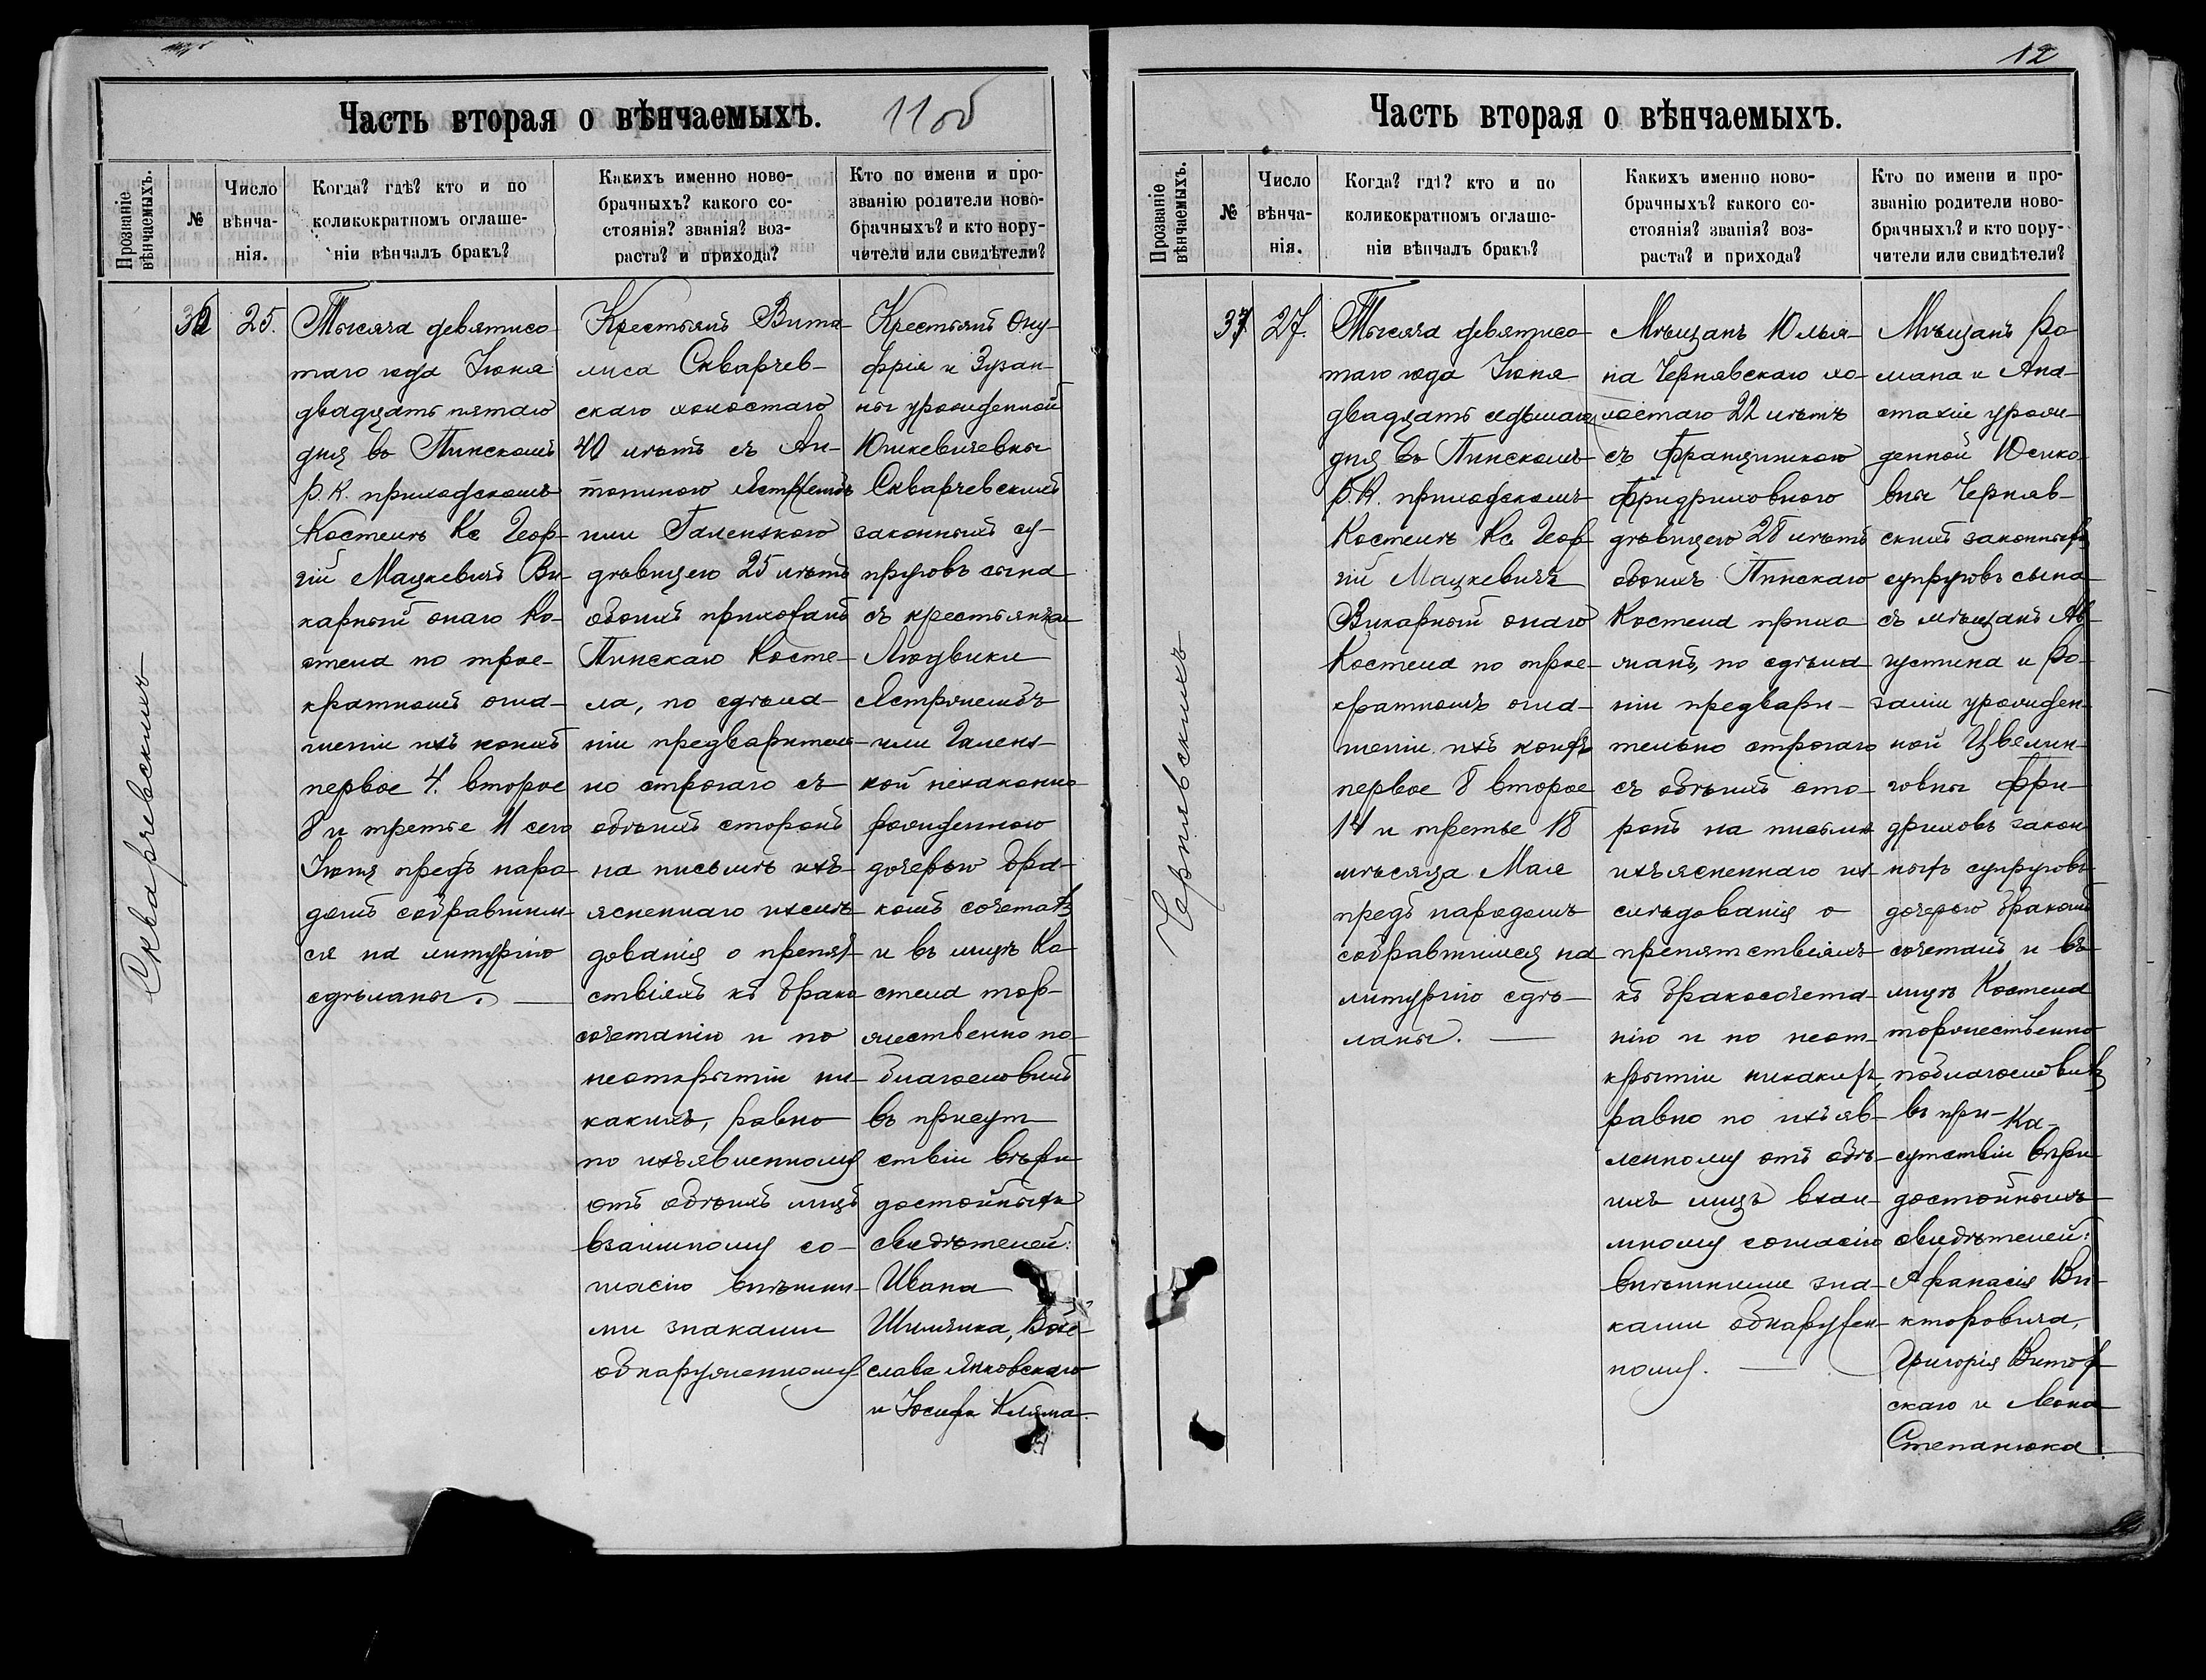 Часть вторая о вѣнчаемыхъ.
11об
Прозваніе вѣнчаемыхъ.
№
Число вѣнча-нія.
Когда? гдѣ? кто и по
коликократномъ оглаше-
ніи вѣнчалъ бракъ?
Какихъ именно ново-
брачныхъ? какого со-
стоянія? званія? воз-
раста? и прихода?
Кто по имени и про-
званію родители ново-
брачныхъ? и кто пору-
чители или свидѣтели?
Скварчевскихъ
25.
Тысяча девятисо-
таго года Іюня
двадцать пятаго
дня въ Пинскомъ
Р. К. приходскомъ
Костелѣ Кс Геор-
гій Мацкевичъ Ви-
карный онаго Ко-
стела по трое-
кратномъ огла-
шеніи изъ коихъ
первое 4. второе
8 и третье 11 сего
Іюня предъ наро-
домъ собравшим-
ся на литургію
сдѣланы.
Крестьянъ Вита-
лиса Скварчев-
скаго холостаго
40 лѣтъ съ Ан-
тониною
или Галенскою
дѣвицею 25 лѣтъ
обоихъ прихожанъ
Пинскаго Косте-
ла, по сдѣла-
ніи предваритель-
но строгаго съ
обѣихъ сторонъ
на письмѣ изъ-
ясненнаго изслѣ-
дованія о препят-
ствіяхъ къ брако-
сочетанію и по
неоткрытіи ни-
какихъ, равно
по изъявленному
отъ обѣихъ лицъ
взаимному со-
гласію внѣшни-
ми знаками
обнаруженному
Крестьянъ Ону-
фрія и Зузан-
ны урожденной
Юшкевичевны
Скварчевскихъ
законныхъ су-
пруговъ сына
съ крестьянки
Людвики
Ястржембъ
или Галенс-
кой незаконно
рожденною
дочерью бра-
комъ сочеталъ
и въ лицѣ Ко-
стела тор-
жественно по-
благословилъ
въ присут-
ствіи вѣри-
достойныхъ
свидѣтелей:
Ивана
слава Янковскаго
и Іосифа
12
Часть вторая о вѣнчаемыхъ.
Прозваніе вѣнчаемыхъ.
№
Число вѣнча-нія.
Когда? гдѣ? кто и по
коликократномъ оглаше-
ніи вѣнчалъ бракъ?
Какихъ именно ново-
брачныхъ? какого со-
стоянія? званія? воз-
раста? и прихода?
Кто по имени и про-
званію родители ново-
брачныхъ? и кто пору-
чители или свидѣтели?
Чернявскихъ
37
27.
Тысяча девятисо-
таго года Іюня
двадцать седьмаго
дня въ Пинскомъ
Р. К. приходскомъ
Костелѣ Кс. Геор-
гій Мацкевичъ
Викарный онаго
Костела по трое-
кратномъ огла-
шеніи изъ коихъ
первое 8 второе
14 и третье 18
мѣсяца Мая
предъ народомъ
собравшимся на
литургію сдѣ-
ланы.
Мѣщанъ Юлья-
на Чернявскаго хо-
лостаго 22 лѣтъ
съ Францишкою
Фридриховною
дѣвицею 28 лѣтъ
обоихъ Пинскаго
Костела прихо-
жанъ, по сдѣла-
ніи предвари-
тельно строгаго
съ обѣихъ сто-
ронъ на письмѣ
изъясненнаго из-
слѣдованія о
препятствіяхъ
къ бракосочета-
нію и по неот-
крытіи никакихъ,
равно по изъяв-
ленному отъ обѣ-
ихъ лицъ взаи-
мному согласію
внѣшними зна-
ками обнаружен-
ному.
Мѣщанъ Ро-
мана и Ана-
стазіи урож-
денной Юсико-
вны Черняв-
скихъ законныхъ
супруговъ сына
съ мѣщанъ Ав-
густина и Ро-
заліи урожден-
ной
Фри-
дриховъ закон-
ныхъ супруговъ
дочерью бракомъ
сочеталъ и въ
лицѣ Костела
торжественно
поблагословилъ
въ при-
сутствіи вѣри-
достойныхъ
свидѣтелей:
Афанасія Ви-
кторовича,
Григорія Витов-
скаго и Леона
Степанюка